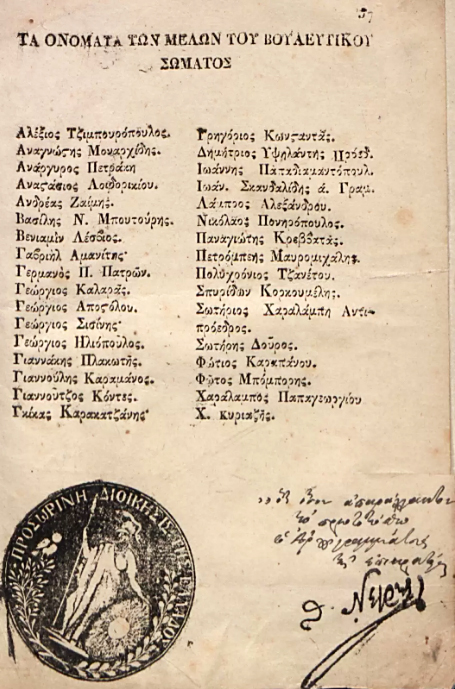 37
ΤΑ ΟΝΟΜΑΤΑ ΤΩΝ ΜΕΛΩΝ ΤΟΥ ΒΟΥΛΕΥΤΙΚΟΥ
ΣΩΜΑΤΟΣ
Αλέξιος Τζιμπουρόπουλος.
Αναγνώςης Μοναρχίδης.
Ανάργυρος Πετράκη
Αναςάσιος Λοιδορικίου.
Ανδρέας Ζαΐμης.
Βασίλης Ν. Μπουτούρης.
Βενιαμὶν Λέσβιος.
Γαβριὴλ Αμανίτης
Γερμανὸς Π. Πατρῶν.
Γεώργιος Καλαρᾶς.
Γεώργιος Αποςόλου.
Γεώργιος Σισίνης
Γεώργιος Ηλιόπουλος.
Γιαννάκης Πλακωτῆς.
Γιαννούλης Καραμάνος.
Γιαννούτζος Κόντες.
Γκίκας Καρακατζάνης
Γρηγόριος Κωνςαντᾶς.
Δημήτριος Υψηλάντης Πρόεδ.
Ιωάννης Παπαδιαμαντόπουλ.
Ιωάν. Σκανδαλίδης ά. Γραμ.
Λάμπρος Αλεξάνδρου.
Νικόλαος Πονηρόπουλος.
Παναγιώτης Κρεββατᾶς.
Πετρόμπεης Μαυρομιχάλης.
Πολυχρόνιος Τζανέτου.
Σπυρίδων Κορκουμέλης.
Σωτήριος Χαραλάμπη Αντι-
πρόεδρος.
Σωτήρης Δοῦρος.
Φώτιος Καραπάνου.
Φῶτος Μπόμπορης.
Χαράλαμπος Παπαγεωργίου
Χ. κυριαζῆς.
ΠΡΟΣΩΡΙΝΗ ΔΙΟΙΚΗΣΙΣ ΤΗΣ ΕΛΛΑΔΟΣ
Θ. Νέγρης